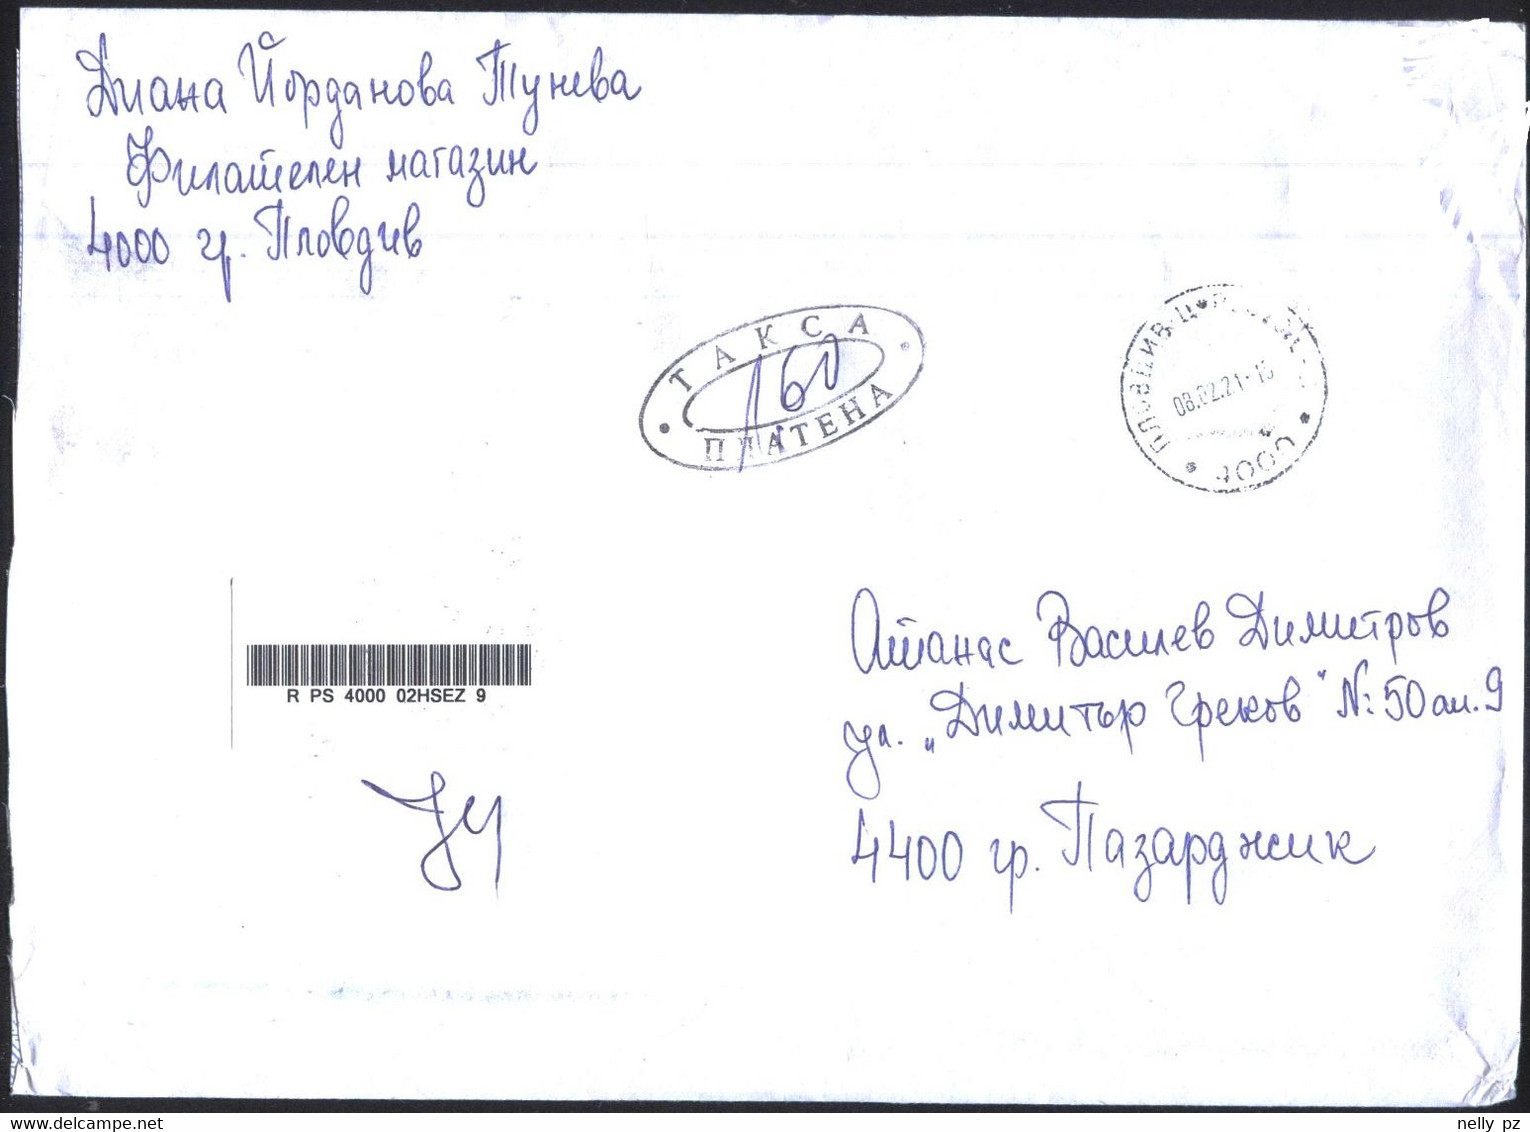 Диана Йорданова Тунева
Филателен магазин
4000 гр. Пловдив
ТАКСА
160
ПЛАТЕНА
ПЛОВДИВ-Ц
08.02.21-
4000
R PS 4000 02HSEZ 9
Атанас Василев Димитров
ул. „Димитър Греков" №:50 ап. 9
4400 гр. Пазарджик
delcampe.net
nelly_pz